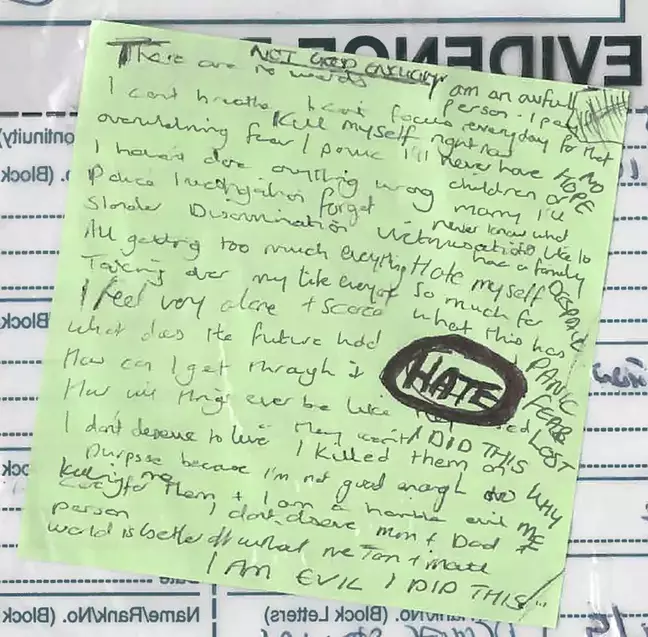 EVIDENCE
NOT GOOD ENOUGH
There are no words
I am an awful person - I pay
I cant breathe I cant focus everyday for that
Kill myself right now
overwhelming fear / panic I'll never have NO
HOPE
I haven't done anything wrong children or
marry I'll
Police Investigation forget never know what
Slander Discrimination Victimisation its like to
have a family
All getting too much everything Hate myself DESPAIR
Taking over my life everyone so much for
what this has
I feel very alone + scared
What does the future hold PANIC
How can I get through it HATE FEAR
How will things ever be like they LOST
they won't I DID THIS
I don't deserve to live I killed them on WHY
purpose because I'm not good enough to ME
care for them + I am a horrible evil
killing me
person I don't deserve mum + Dad
world is better off without me Tom + Matt
I AM EVIL I DID THIS
ontinuity)
o. (Block
Block
ock
Date
Name/Rank/No. (Block Letters)
Rank/No. (Block Letters)